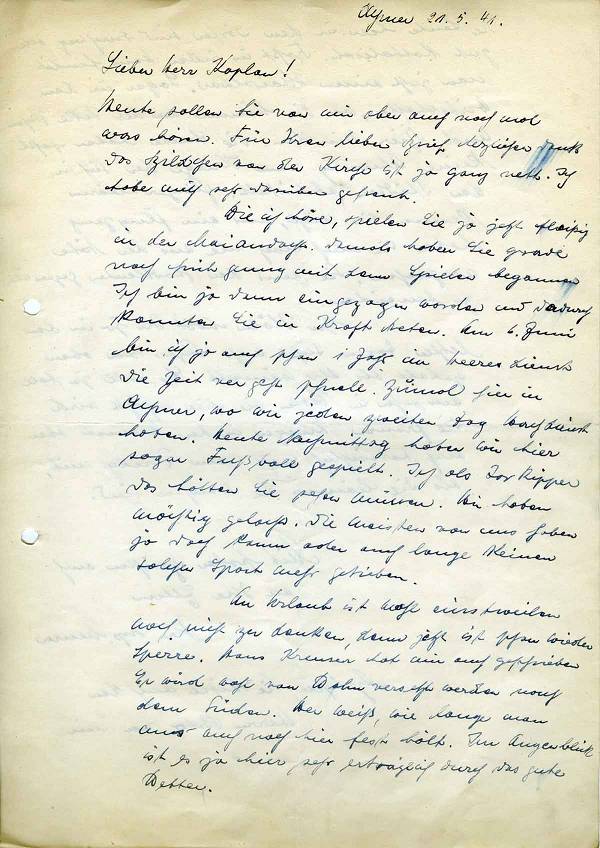 Aymer 21.5.41.
Lieber Herr Kaplan!
Heute sollen Sie von mir aber auch noch mal
was hören. Für Ihren lieben Brief herzlichen Dank
Das Bildchen von der Kirche ist ja ganz nett. Ich
habe mich sehr darüber gefreut.
Wie ich höre, spielen Sie ja jetzt fleißig
in der Maiandacht. Damals haben Sie grade
noch früh genug mit dem Spielen begonnen
Ich bin ja dann eingezogen worden und dadurch
konnten Sie in Kraft treten. Am 6. Juni
bin ich ja auch schon 1 Jahr im Heeresdienst
Die Zeit vergeht schnell. Zumal hier in
Aymer, wo wir jeden zweiten Tag Wachdienst
haben. Heute Nachmittag haben wir hier
sogar Fußball gespielt. Ich als Torkipper
das hätten Sie sehen müssen. Wir haben
mächtig gelacht. Die meisten von uns haben
ja doch kaum oder auch lange keinen
solchen Sport mehr getrieben.
An Urlaub ist wohl einstweilen
noch nicht zu denken, denn jetzt ist schon wieder
Sperre. Hans Kremer hat mir auch geschrieben
Er wird wohl von Dahn versetzt werden nach
dem Süden. Wer weiß, wie lange man
uns auch noch hier fest hält. Im Augenblick
ist es ja hier sehr erträglich durch das gute
Wetter.